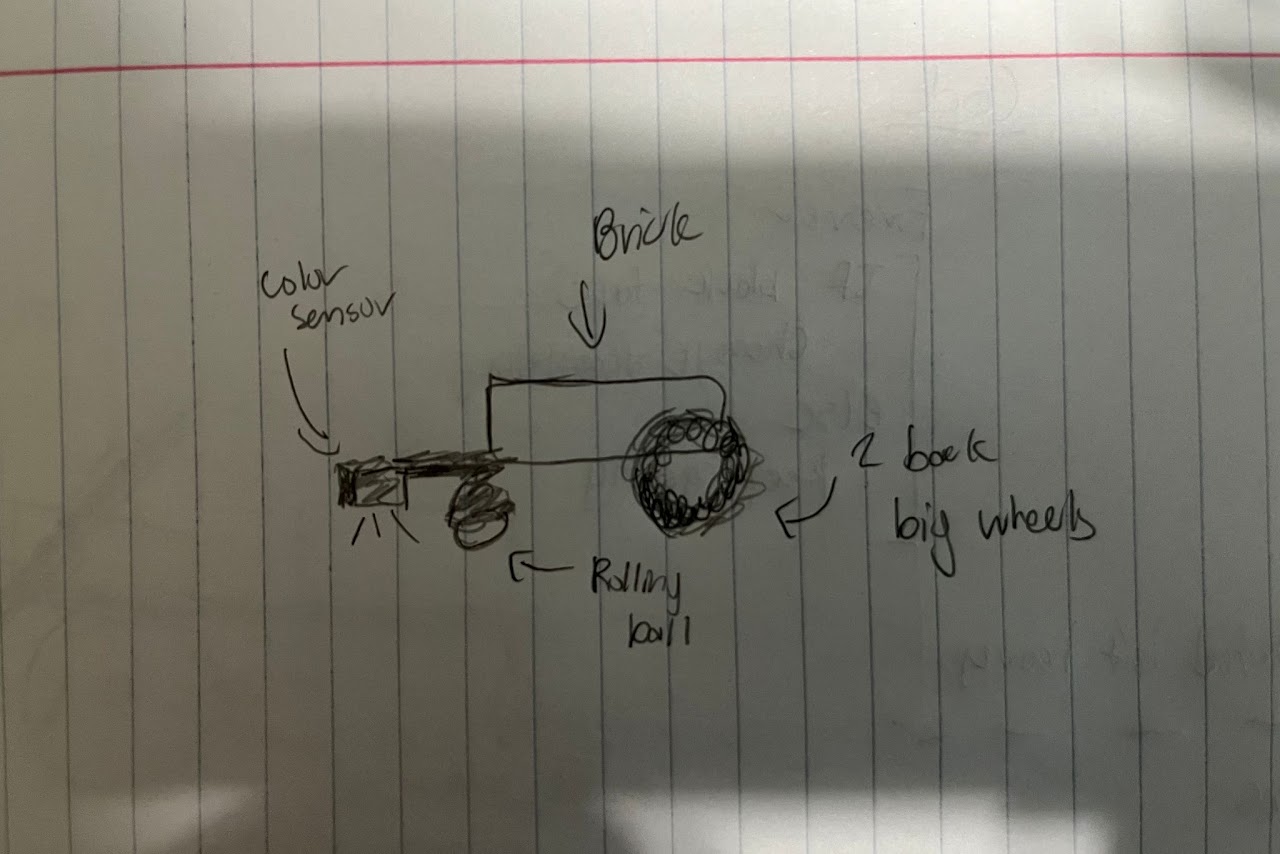 Brick
color
sensor
2 back
big wheels
Rolling
ball